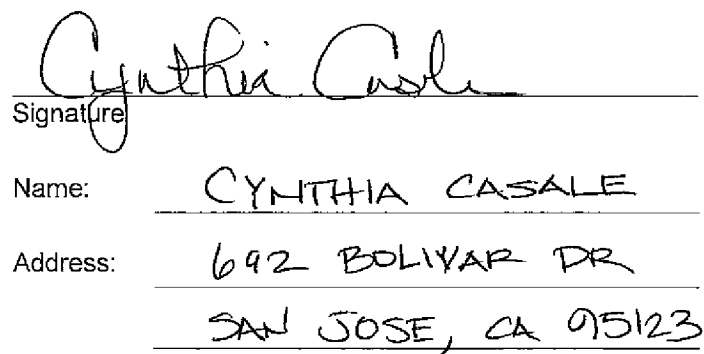 Cynthia Casale
Signature
Name: CYNTHIA CASALE
Address: 692 BOLIVAR DR
SAN JOSE, CA 95123